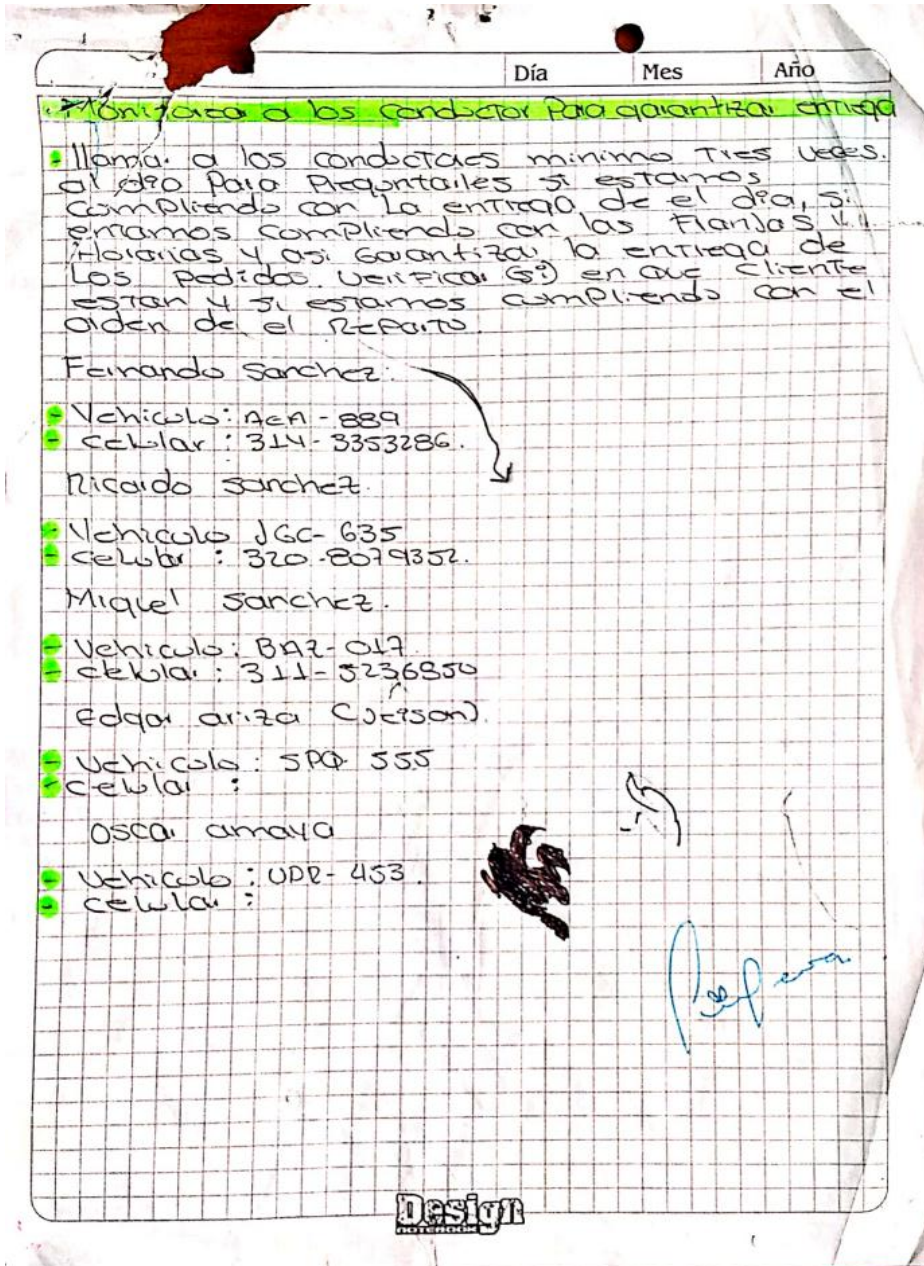 Día Mes Año
a los conductor Para garantizar entrega
- llamar a los conductores minimo Tres veces.
al día Para Preguntarles si estamos
cumpliendo con La entrega de el día, si
entamos cumpliendo con las Franjas
Horarias y asi Garantizar la entrega de
Los Pedidos. Verificar en que Cliente
estan y si estamos cumpliendo con el
orden de el Reparto.
Fernando Sanchez.
- Vehiculo: AEA - 889
- celular : 314-3353286.
Ricardo sanchez.
- Vehiculo JGC- 635
- celular : 320-8079352.
Miguel sanchez.
- Vehiculo: BAZ-017.
- celular : 311-5236850
edgar ariza (Jeison).
- Vehiculo: SPQ 555
- celular :
oscar amaya
- Vehiculo : UPR- 453.
- celular :
Design
NOTEBOOK